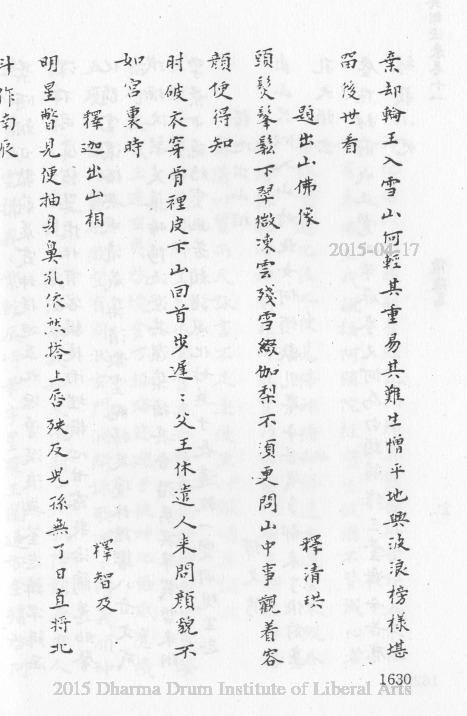 棄却輪王入雪山何輕其重易其難生憎平地興波浪榜樣堪
留後世看
題出山佛像 釋清珙
頭髮鬔鬆下翠微凍雲殘雪綴伽梨不須更問山中事觀着容
顏便得知
肘破衣穿骨裡皮下山回首步遲遲父王休遣人来問顏貌不
如宮裏時
釋迦出山相 釋智及
明星瞥見便抽身鼻孔依然搭上唇殃及兒孫無了日直將北
斗作南辰
1630
2015-04-17
2015 Dharma Drum Institute of Liberal Arts